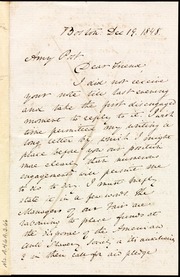 Boston Dec 19. 1848.
Amy Post
Dear Friend
I did not receive
your note till last evening
and take the first disengaged
moment to reply to it. I wish
time permitted my writing a
long letter by which I might
place before you our position
more clearly than numerous
engagements will permit one
to do so. I must briefly
state in a few words the
Managers of our Fair are
to place funds at
the disposal of the American
Anti Slavery Society & its auxiliaries
& on their call for aid pledge